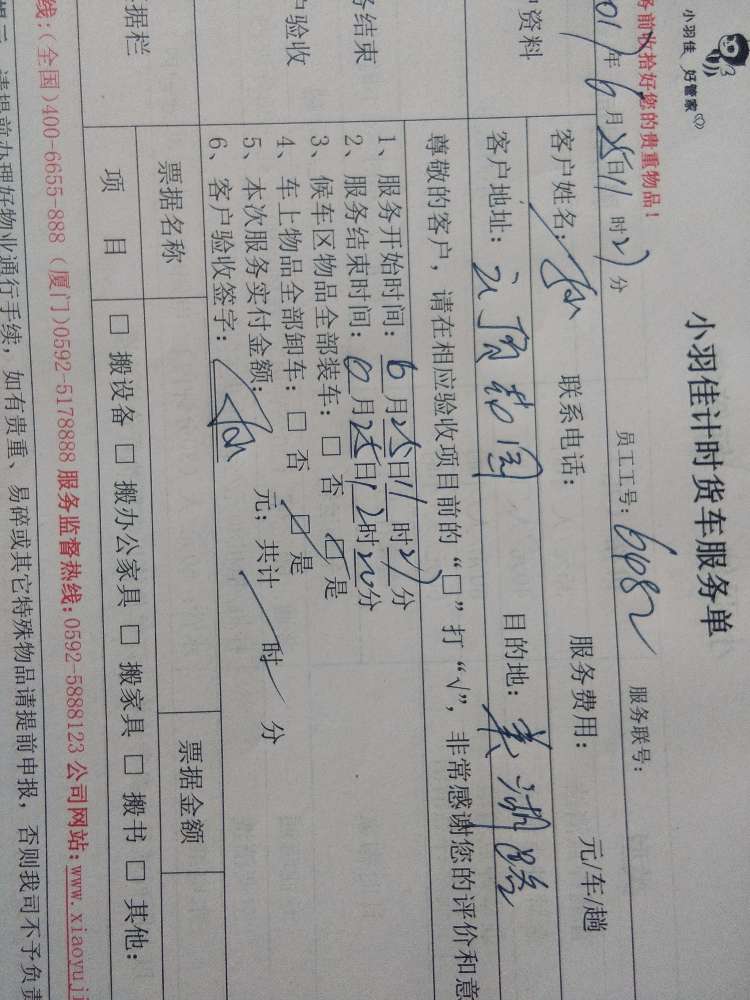 小羽佳 好管家
小羽佳计时货车服务单
务前收拾好您的贵重物品!
员工工号: 6482 服务联号:
年 6 月 25 日 11 时 21 分
户资料
客户姓名: 联系电话: 服务费用: 元/车/趟
客户地址: 目的地:
尊敬的客户, 请在相应验收项目前的 “□” 打 “√”, 非常感谢您的评价和意
务结束
户验收
1、服务开始时间: 6 月 25 日 11 时 21 分
2、服务结束时间: 6 月 25 日 12 时 20 分
3、候车区物品全部装车: □ 否 □ 是
4、车上物品全部卸车: □ 否 □ 是
5、本次服务实付金额: 元; 共计 时 分
6、客户验收签字:
据栏
票据名称 票据金额
项 目 □ 搬设备 □ 搬办公家具 □ 搬家具 □ 搬书 □ 其他:
线:(全国)400-6655-888 (厦门)0592-5178888 服务监督热线:0592-5888123 公司网站:www.xiaoyuji
请提前办理好物业通行手续, 如有贵重、易碎或其它特殊物品请提前申报, 否则我司不予负责